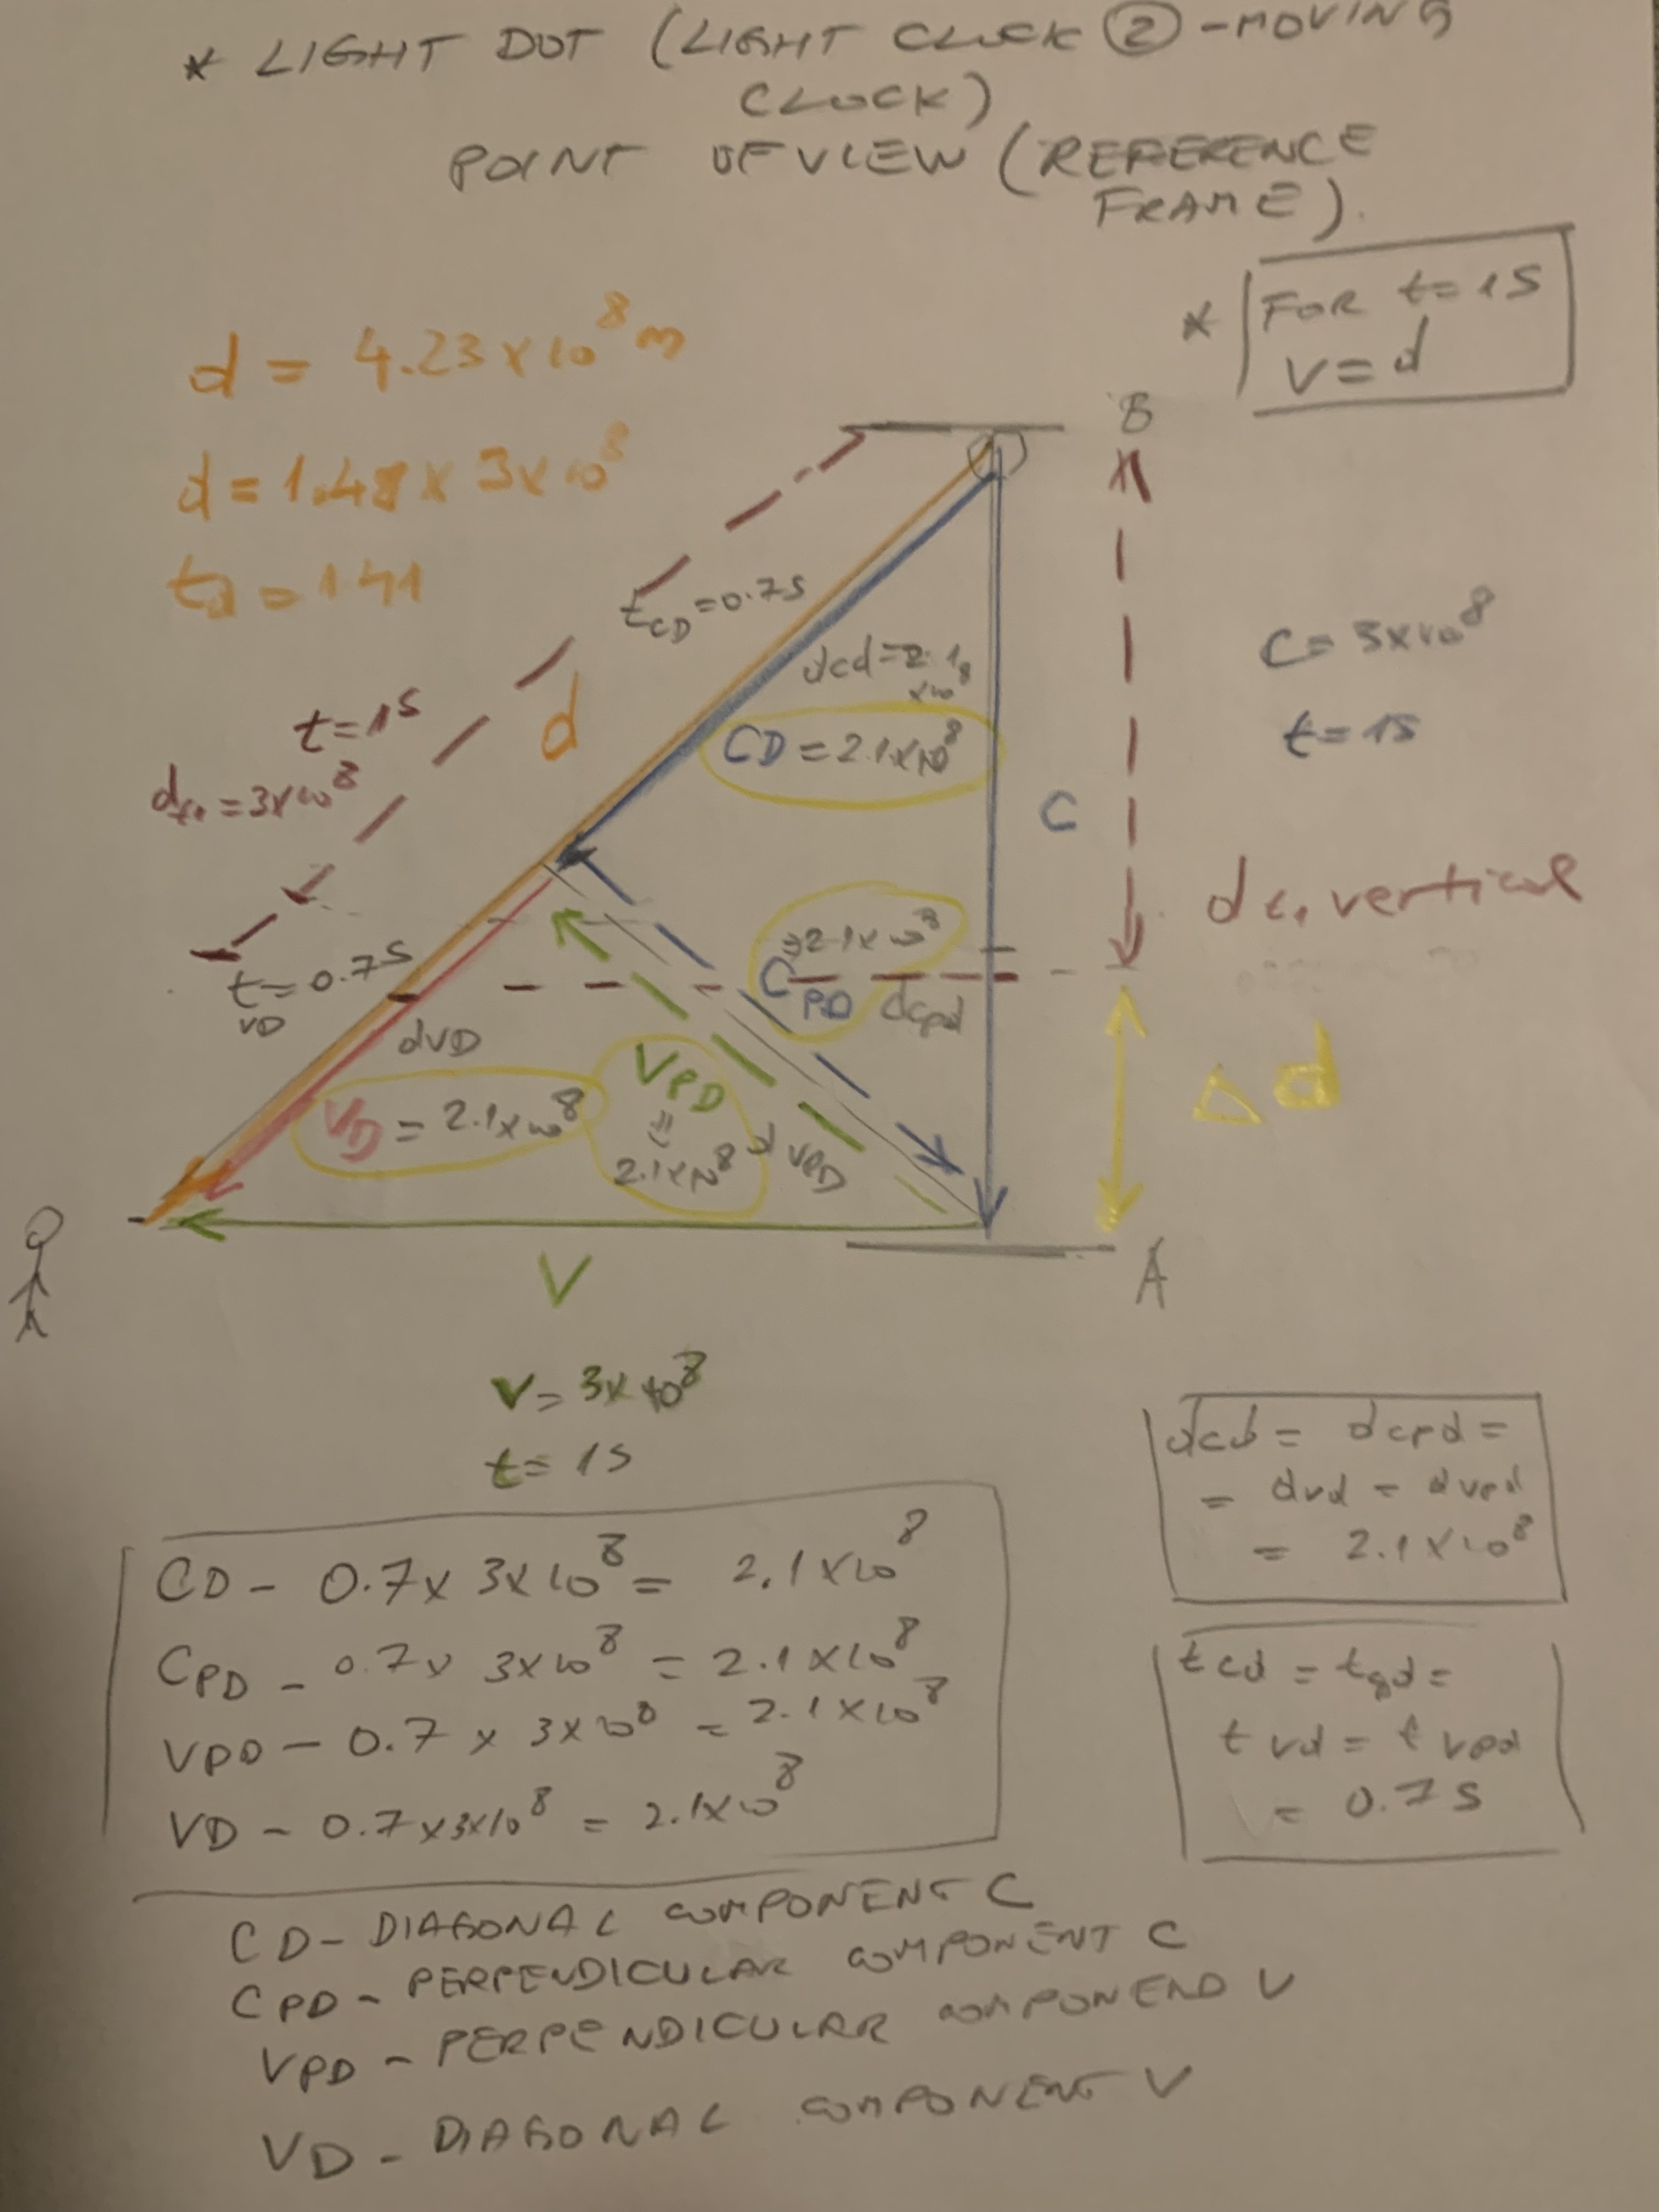 * LIGHT DOT (LIGHT CLOCK ② - MOVING
CLOCK)
POINT OF VIEW (REFERENCE
FRAME).
* FOR t = 1S
V = d
d = 4.23 x 10^8 m
d = 1.41 x 3 x 10^8
td = 1 41
B
tCD = 0.7S
dcd = 2.1
x10^8
CD = 2.1x10^8
C = 3x10^8
t = 1S
t = 1S
d
C
dt1 = 3x10^8
dt1 vertical
= 2.1 x 10^8
CPD dcpd
tVD = 0.7S
dVD
Δd
VPD
=
2.1x10^8
VD = 2.1x10^8
dVPD
V
A
V = 3x10^8
t = 1S
dcd = dcpd =
= dvd = dvpd
= 2.1 x 10^8
CD - 0.7 x 3x10^8 = 2.1 x10^8
CPD - 0.7 x 3x10^8 = 2.1 x10^8
VPD - 0.7 x 3x10^8 = 2.1 x10^8
VD - 0.7 x3x10^8 = 2.1x10^8
tvd = tvpd
= 0.7 S
CD - DIAGONAL COMPONENT C
CPD - PERPENDICULAR COMPONENT C
VPD - PERPENDICULAR COMPONEND V
VD - DIAGONAL COMPONENT V